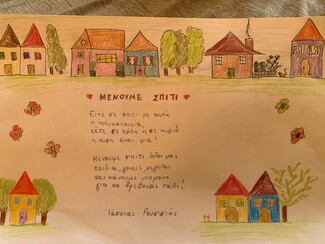 ΜΕΝΟΥΜΕ ΣΠΙΤΙ
Είτε σε σπίτι με αυλή
ή πολυκατοικία,
είτε σε πόλη ή σε χωριό
η λύση είναι μία!
Μένουμε σπίτι όλοι μας
παιδιά, γονείς, μεγάλοι
και κάνουμε υπομονή
για να βρεθούμε πάλι!
Ιάσονας